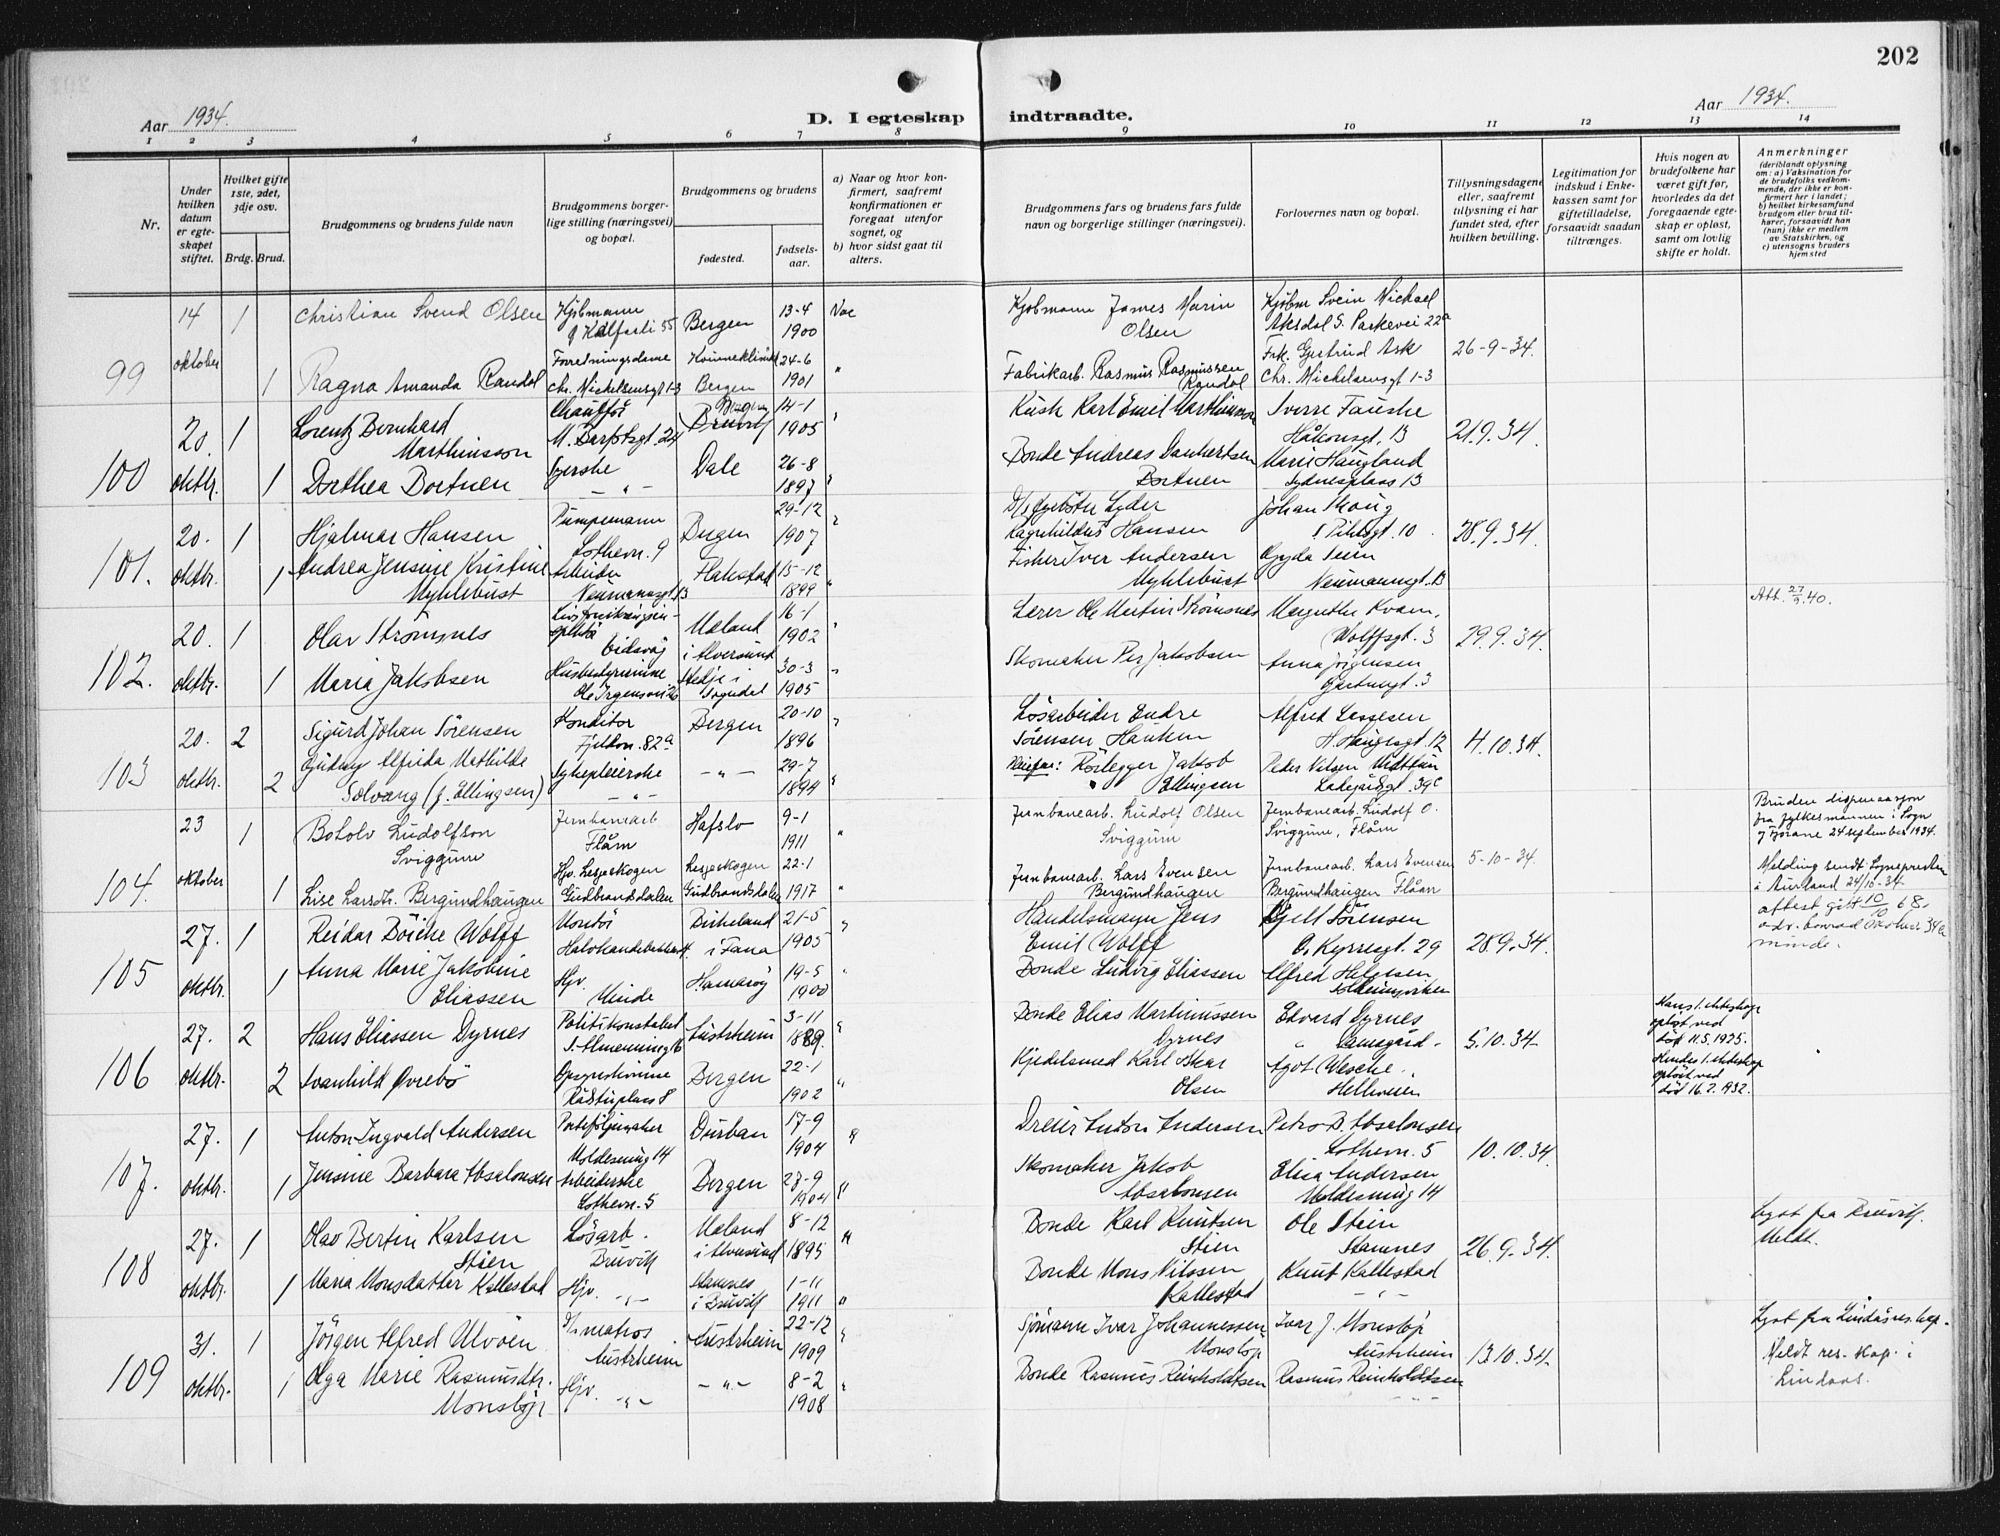 202
Aar 1934.
D. I egteskap indtraadte.
Aar 1934.
1 2 3 4 5 6 7 8 9 10 11 12 13 14
Nr.
Under hvilken datum er egteskapet stiftet.
Hvilket gifte 1ste, 2det, 3dje osv.
Brdg. Brud.
Brudgommens og brudens fulde navn
Brudgommens borgerlige stilling (næringsvei) og bopæl.
Brudgommens og brudens
fødested.
fødselsaar.
a) Naar og hvor konfirmert, saafremt konfirmationen er foregaat utenfor sognet, og
b) hvor sidst gaat til alters.
Brudgommens fars og brudens fars fulde navn og borgerlige stillinger (næringsvei).
Forlovernes navn og bopæl.
Tillysningsdagene eller, saafremt tillysning ei har fundet sted, efter hvilken bevilling.
Legitimation for indskud i Enkekassen samt for giftetilladelse, forsaavidt saadan tiltrænges.
Hvis nogen av brudefolkene har været gift før, hvorledes da det foregaaende egteskap er opløst, samt om lovlig skifte er holdt.
Anmerkninger
(deriblandt oplysning om: a) Vaksination for de brudefolks vedkommende, der ikke er konfirmert her i landet; b) hvilket kirkesamfund brudgom eller brud tilhører, forsaavidt han (hun) ikke er medlem av Statskirken, og c) utensogns bruders hjemsted
99
14 oktober 1 Christian Svend Olsen Kjøbmann Kalfarli 55 Bergen 13-4 1900 Kjøbmann James Marin Olsen Kjøbm Svein Michael Aksdal S. Parkevei 22a
1 Ragna Amanda Randal Forretningsdame Chr. Michelsensgt 1-3 Kvinneklinikk Bergen 24-6 1901 " Fabrikarb. Rasmus Rasmussen Randal Frk. Gjertrud Ask Chr. Michelsensgt 1-3 26-9-34.
100
20. oktbr. 1 Lorentz Bernhard Marthinsson Chauffør 24 Bergen 14-1 1905 " Kusk Karl Emil Marthinsson Sverre Fauske Håkonsgt. 13 21.9.34.
1 Dorthea Dortnen Syerske - " - Dale 26-8 1897 " Bonde Andreas Dortnen Marie Haugland Sydnesplass 13
101.
20. oktbr. 1 Hjalmar Hansen Pumpemann Lothevn. 9 Bergen 29-12 1907 " Hansen Johan 10 28.9.34.
1 Andrea Jensine Kristine Myklebust Neumannsgt. 13 Flakstad 15-12 1899 " Fisker Iver Andersen Myklebust Gyda Neumannsgt. 13
102.
20 oktbr. 1 Olav Strømsnes Eidsvåg Mæland i Alversund 16-1 1902 " Lærer Ole Martin Strømsnes Margrethe Kvam, Wolffsgt. 3 29.9.34. Att. 27/9.40.
1 Maria Jakobsen Husbestyrerinne Sogndal 30-3 1905 " Skomaker Per Jakobsen Anna Jørgensen 3
103
20. oktbr. 2 Sigurd Johan Sørensen Konditor Fjeldvn. 82a Bergen 20-10 1896 " Løsarbeider Endre Sørensen Hauken Alfred Lassesen H. Haugesgt. 12 4.10.34.
2 Gudny Alfrida Mathilde Solvang (f. Ellingsen) Sykepleierske - " - - " - 29-7 1894 " Rørlegger Jakob Ellingsen Peder Nilsen Midttun Ladegårdsgt. 39c
104.
23 oktober 1 Botolv Ludolfson Sviggum Jernbanearb Flåm Hafslo 9-1 1911 " Jernbanearb. Ludolf Olsen Sviggum Jernbanearb. Ludolf O. Sviggum, Flåm 5-10-34.
1 Lise Larsdtr. Bergundhaugen Hjv. Lesjeskogen Gudbrandsdalen Lesjeskogen Gudbrandsdalen 22-1 1917 " Jernbanearb. Lars Evensen Bergundhaugen Jernbanearb. Lars Evensen Bergundhaugen Flåm
Bruden dispensasjon fra fylkesmannen i Sogn og Fjordane 24 september 1934.
Melding sendt Sognepresten i Aurland 24/10-34
attest gitt 10/10 68.
105
27. oktbr. 1 Reidar Böiche Wolff Kontor Birkeland i Fana 21-5 1905 " Handelsmann Jens Emil Wolff Kjell Sørensen O. Kyrresgt. 29 28.9.34.
1 Anna Marie Jakobine Eliassen Hjv. Minde Hamarøy 19-5 1900 " Bonde Ludvig Eliassen Alfred Solheimsviken
106
27. oktbr. 2 Hans Eliassen Dyrnes Politikonstabel Austrheim 3-11 1889. " Bonde Elias Martinussen Dyrnes Edvard Dyrnes 5.10.34.
Hans 1. ekteskap opløst ved død 11.5.1925.
2 Svanhild Øvrebö Bergen 22-1 1902 " Kjedelsmed Karl Oskar Olsen Agot Wesche, Helleveien
Hendes 1. ekteskap opløst ved død 16.2.1932.
107.
27. oktbr. 1 Anton Ingvald Andersen Moldesmug 14 Durban 17-9 1904 " Dreier Anton Andersen Petra B. Absalonsen Lothevn. 5 10.10.34.
1 Jensine Barbara Absalonsen Arbeiderske Lothevn. 5 Bergen 27-9 1904 " Skomaker Jakob Absalonsen Elisa Andersen Moldesmug 14
108
27. oktbr. 1 Olav Bertin Karlsen Stien Løsarb. Bruvik Mæland i Alversund 8-12 1895 " Bonde Karl Knutsen Stien Ole Stien Stamnes 26.9.34. Lyst fra Bruvik. Meldt.
1 Maria Monsdatter Kallestad Hjv. - " - Stamnes i Bruvik 1-11 1911 " Bonde Mons Nilssen Kallestad Knut Kallestad - " -
109
31. oktbr. 1 Jörgen Alfred Ulvøen St. matros Austrheim Austrheim 22-12 1909 " Sjömann Ivar Johannessen Monslop Ivar J. Monslop Austrheim 13.10.34. Lyst fra Lindås res. kap. Meldt res. kap. i Lindaas.
1 Olga Marie Rasmusdtr. Monslop Hjv. - " - - " - 8-2 1908 " Bonde Rasmus Reinholdtsen Rasmus Reinholdtsen